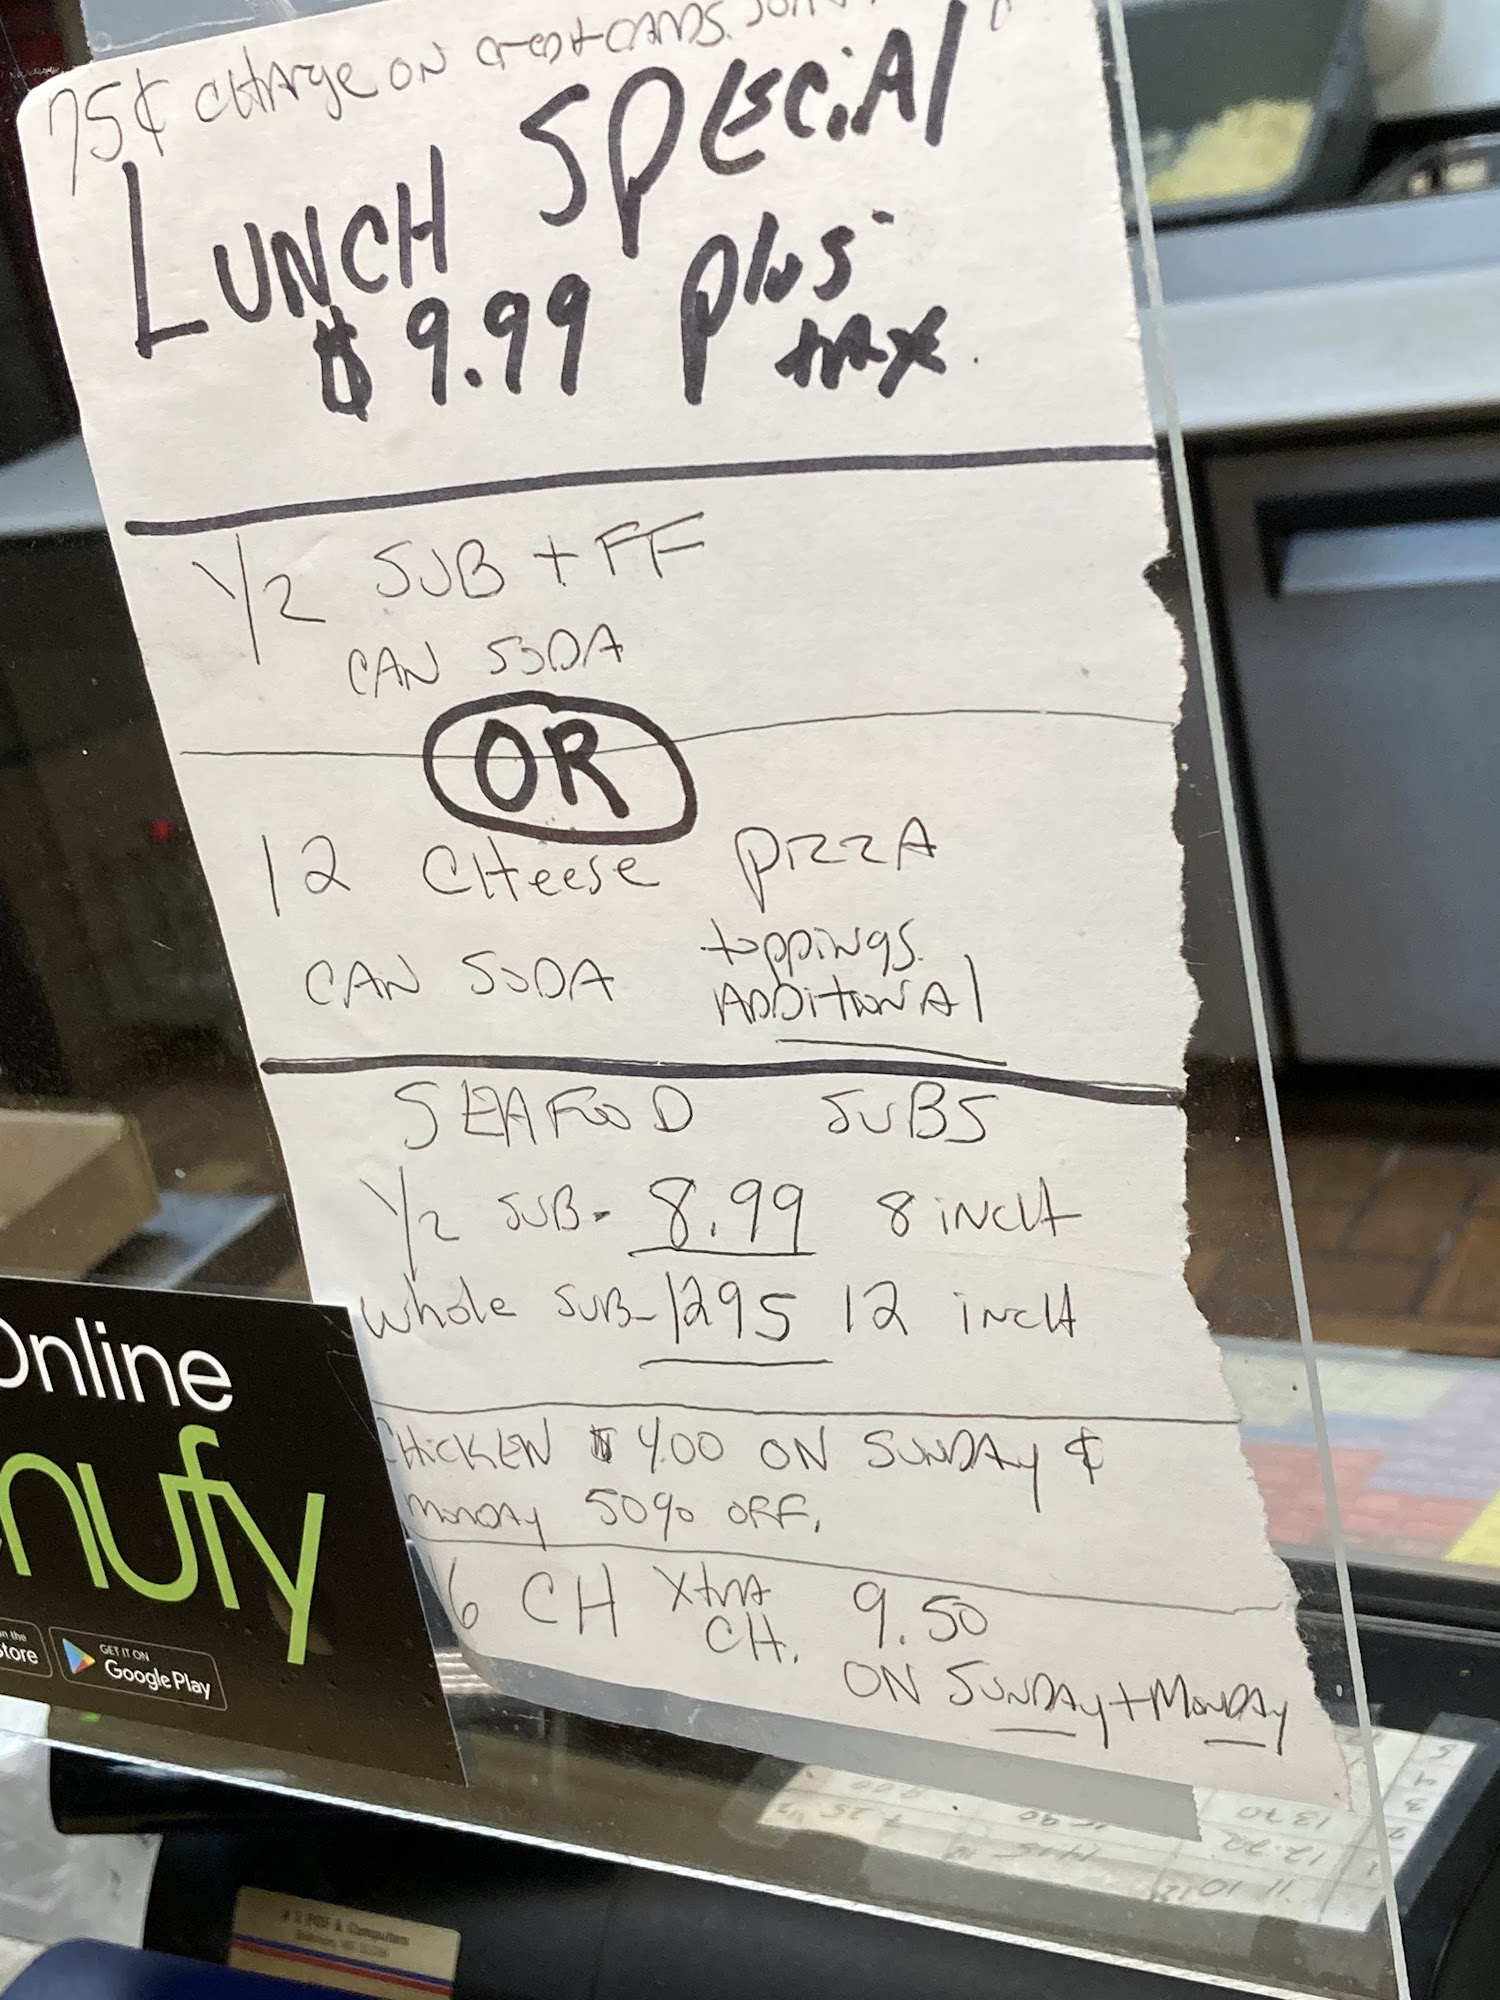 75¢ CHArge ON creditCARDS.
LUNCH SPECiAl
$9.99 plus
tAx.
1/2 SUB + FF
CAN SODA
OR
12 CHeese PIZZA
CAN SODA toppings.
ADDitionAl
SEAFOOD SUBS
1/2 SUB- 8.99 8 iNCH
Whole SUB- 1295 12 iNCH
HiCKEN $ 4.00 ON SUNDAy &
MONDAy 50% OFF.
16 CH XtrA 9.50
CH.
ON SUNDAy + MONDAy
Online
nufy
on the
Store
GET IT ON
Google Play